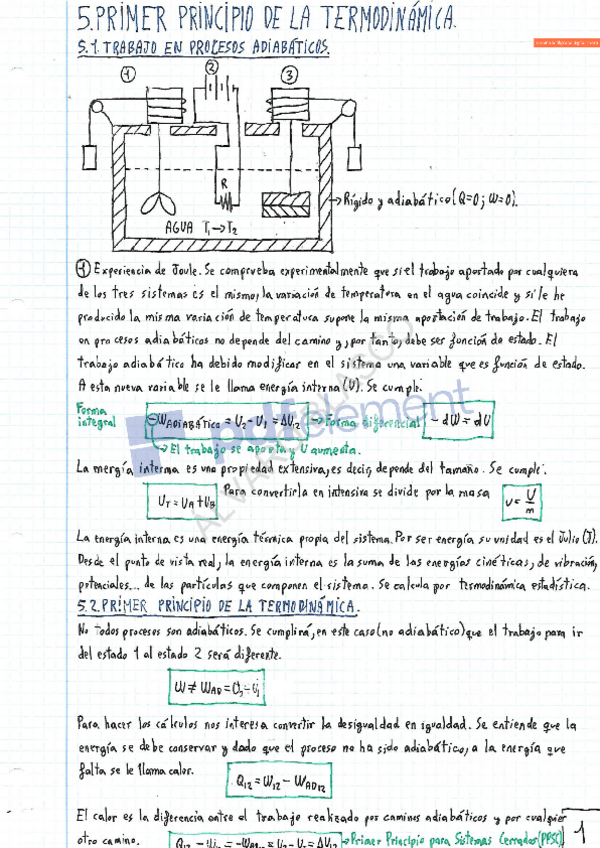 5. PRIMER PRINCIPIO DE LA TERMODINÁMICA.
5.1. TRABAJO EN PROCESOS ADIABÁTICOS.
1 2 3
R
Rígido y adiabático (Q=0; W=0).
AGUA T₁→T₂
1 Experiencia de Joule. Se comprueba experimentalmente que si el trabajo aportado por cualquiera
de los tres sistemas es el mismo, la variación de temperatura en el agua coincide y si le he
producido la misma variación de temperatura supone la misma aportación de trabajo. El trabajo
en procesos adiabáticos no depende del camino y, por tanto, debe ser función de estado. El
trabajo adiabático ha debido modificar en el sistema una variable que es función de estado.
A esta nueva variable se le llama energía interna (U). Se cumple:
Forma integral
-W_ADIABÁTICO = U₂ - U₁ = ΔU₁₂ → Forma diferencial - dW = dU
→ El trabajo se aporta y U aumenta.
La energía interna es una propiedad extensiva, es decir, depende del tamaño. Se cumple:
U_T = U_A + U_B Para convertirla en intensiva se divide por la masa u = U/m
La energía interna es una energía térmica propia del sistema. Por ser energía su unidad es el Julio (J).
Desde el punto de vista real, la energía interna es la suma de las energías cinéticas, de vibración,
potenciales... de las partículas que componen el sistema. Se calcula por termodinámica estadística.
5.2. PRIMER PRINCIPIO DE LA TERMODINÁMICA.
No todos procesos son adiabáticos. Se cumplirá, en este caso (no adiabático) que el trabajo para ir
del estado 1 al estado 2 será diferente.
W ≠ W_AD = U₂ - U₁
Para hacer los cálculos nos interesa convertir la desigualdad en igualdad. Se entiende que la
energía se debe conservar y dado que el proceso no ha sido adiabático, a la energía que
falta se le llama calor.
Q₁₂ = W₁₂ - W_AD₁₂
El calor es la diferencia entre el trabajo realizado por caminos adiabáticos y por cualquier
otro camino. Q₁₂ - W₁₂ = -W_AD₁₂ = U₂ - U₁ = ΔU₁₂ → Primer Principio para Sistemas Cerrados (PPSC)
1
pdfelement